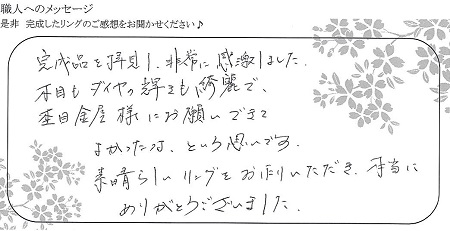 職人へのメッセージ
是非 完成したリングのご感想をお聞かせください♪
完成品を拝見し、非常に感激しました。
木目もダイヤの輝きも綺麗で、
杢目金屋様にお願いできて
よかったな、という思いです。
素晴らしいリングをお作りいただき、本当に
ありがとうございました。